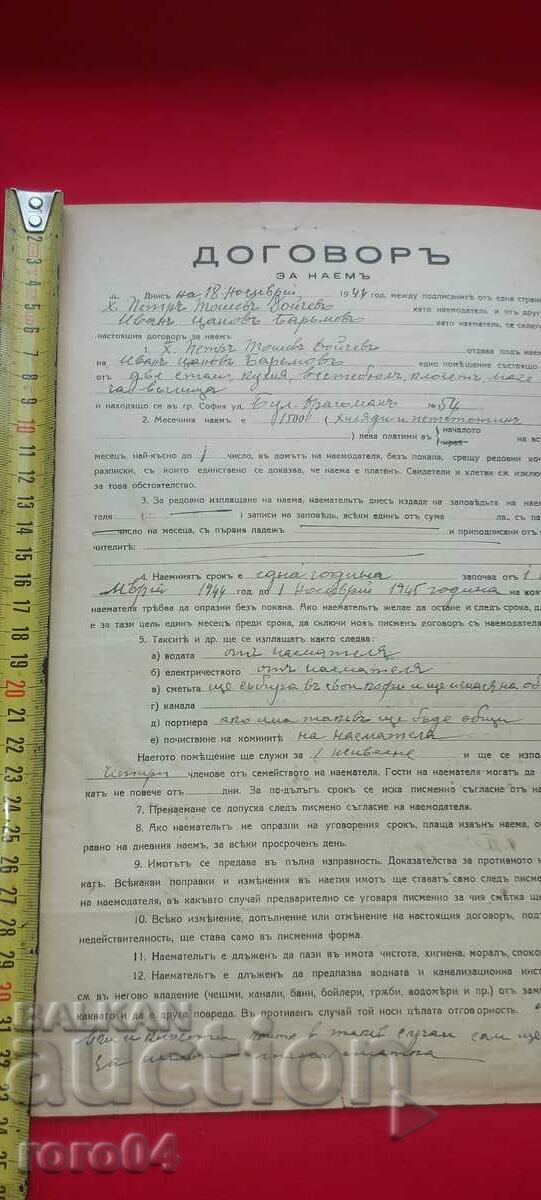 ДОГОВОРЪ
ЗА НАЕМЪ
Днисъ на 18 Ноемврий 1944 год. между подписанитѣ отъ една стран
Х. Петъръ Тошевъ Войчев като наемодатель и отъ друг
Иванъ Цановъ Баръмовъ като наематель, се склю
настоящия договоръ за наемъ.
1. Х. Петръ Тошевъ Войчев отдава подъ наем
на Иванъ Цановъ Баремовъ едно помѣщение състояще
отъ две стаи, кухня, вестебюлъ, клозетъ, мазе
и находящо се въ гр. София ул. Бул. Драгоманъ № 54
2. Месечния наемъ е 1500 (Хиляди и петстотин
) лева платими въ началото на вс
месецъ, най-късно до 1 число, въ домътъ на наемодателя, безъ покана, срещу редовни хо
разписки, съ които единствено се доказва, че наема е платенъ. Свидетели и клетви сѫ изклю
за това обстоятелство.
3. За редовно изплащане на наема, наемательтъ днесъ издаде на заповѣдьта на наем
теля ( ) записи на заповѣдь, всѣки единъ отъ сума лв., съ па
число на месеца, съ първия падежъ и приподписани отъ
чителитѣ:
4. Наемниятъ срокъ е една година започва отъ 1
мврий 1944 год до 1 Ноемврий 1945 година на коя
наемателя трѣбва да опразни безъ покана. Ако наемательтъ желае да остане и следъ срока, д
е за тази цель единъ месецъ преди срока, да сключи новъ писменъ договоръ съ наемодателя
5. Таксите и др. ще се изплащатъ както следва:
а) водата отъ наемателя
б) електричеството отъ наемателя
в) сметьта ще събира въ свои кофи и ще изнася на об
г) канала
д) портиера ако има такъв ще бъде общи
е) почистване на коминитѣ на наемателя
Наетото помѣщение ще служи за живеене и ще се изпо
четири членове отъ семейството на наемателя. Гости на наемателя могатъ да
катъ не повече отъ дни. За по-дългъ срокъ се иска писмено съгласие отъ на
7. Пренаемане се допуска следъ писмено съгласие на наемодателя.
8. Ако наемательтъ не опразни на уговорения срокъ, плаща извънъ наема, о
равно на дневния наемъ, за всѣки просроченъ день.
9. Имотътъ се предава въ пълна изправность. Доказателства за противното н
катъ. Всѣкакви поправки и измѣнения въ наетия имотъ ще ставатъ само следъ писмен
на наемодателя, въ какъвто случай предварително се уговаря писменно за чия смѣтка щ
10. Всѣко изменение, допълнение или отмѣнение на настоящия договоръ, подъ
недействителность, ще става само въ писменна форма.
11. Наемательтъ е длъженъ да пази въ имота чистота, хигиена, моралъ, спокой
12. Наемательтъ е длъженъ да предпазва водната и канализационна инс
сѫ въ негово владение (чешми, канали, бани, бойлери, трѫби, водомѣри и пр.) отъ зам
каквато и да е друга повреда. Въ противенъ случай той носи цѣлата отговорность.
в такъв случай сам ще
БАЛКАН
auction
roro04